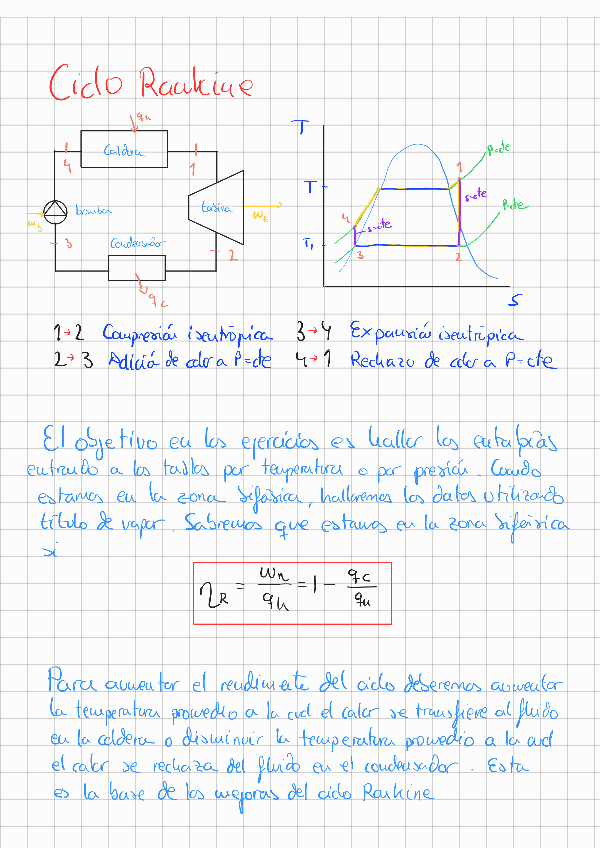 Ciclo Rankine
qH
Caldera
4
1
bomba
wb
turbina
wt
3
Condensador
2
qc
T
T
T1
P=cte
P=cte
s=cte
s=cte
1
2
3
4
S
1→2 Compresión isentrópica 3→4 Expansión isentrópica
2→3 Adición de calor a P=cte 4→1 Rechazo de calor a P=cte
El objetivo en los ejercicios es hallar las entalpías
entrando a las tablas por temperatura o por presión. Cuando
estamos en la zona bifásica, hallaremos los datos utilizando
título de vapor. Sabremos que estamos en la zona bifásica
si
ηR = wn/qH = 1 - qc/qH
Para aumentar el rendimiento del ciclo deberemos aumentar
la temperatura promedio a la cual el calor se transfiere al fluido
en la caldera o disminuir la temperatura promedio a la cual
el calor se rechaza del fluido en el condensador. Esta
es la base de las mejoras del ciclo Rankine